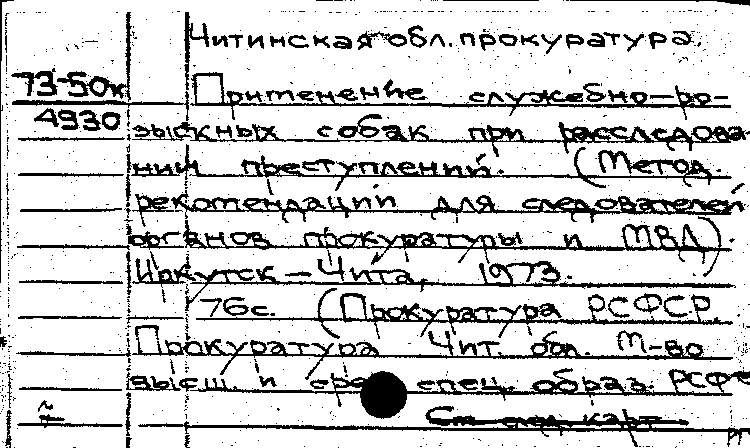 Читинская обл. прокуратура.
73-50к
4930
Применение служебно-ро-
зыскных собак при расследова-
нии преступлений. (Метод.
рекомендации для следователей
органов прокуратуры и МВД).
Иркутск - Чита, 1973.
76с. (Прокуратура РСФСР.
Прокуратура Чит. обл. М-во
высш. и спец. образ. РСФС
См. след. карт